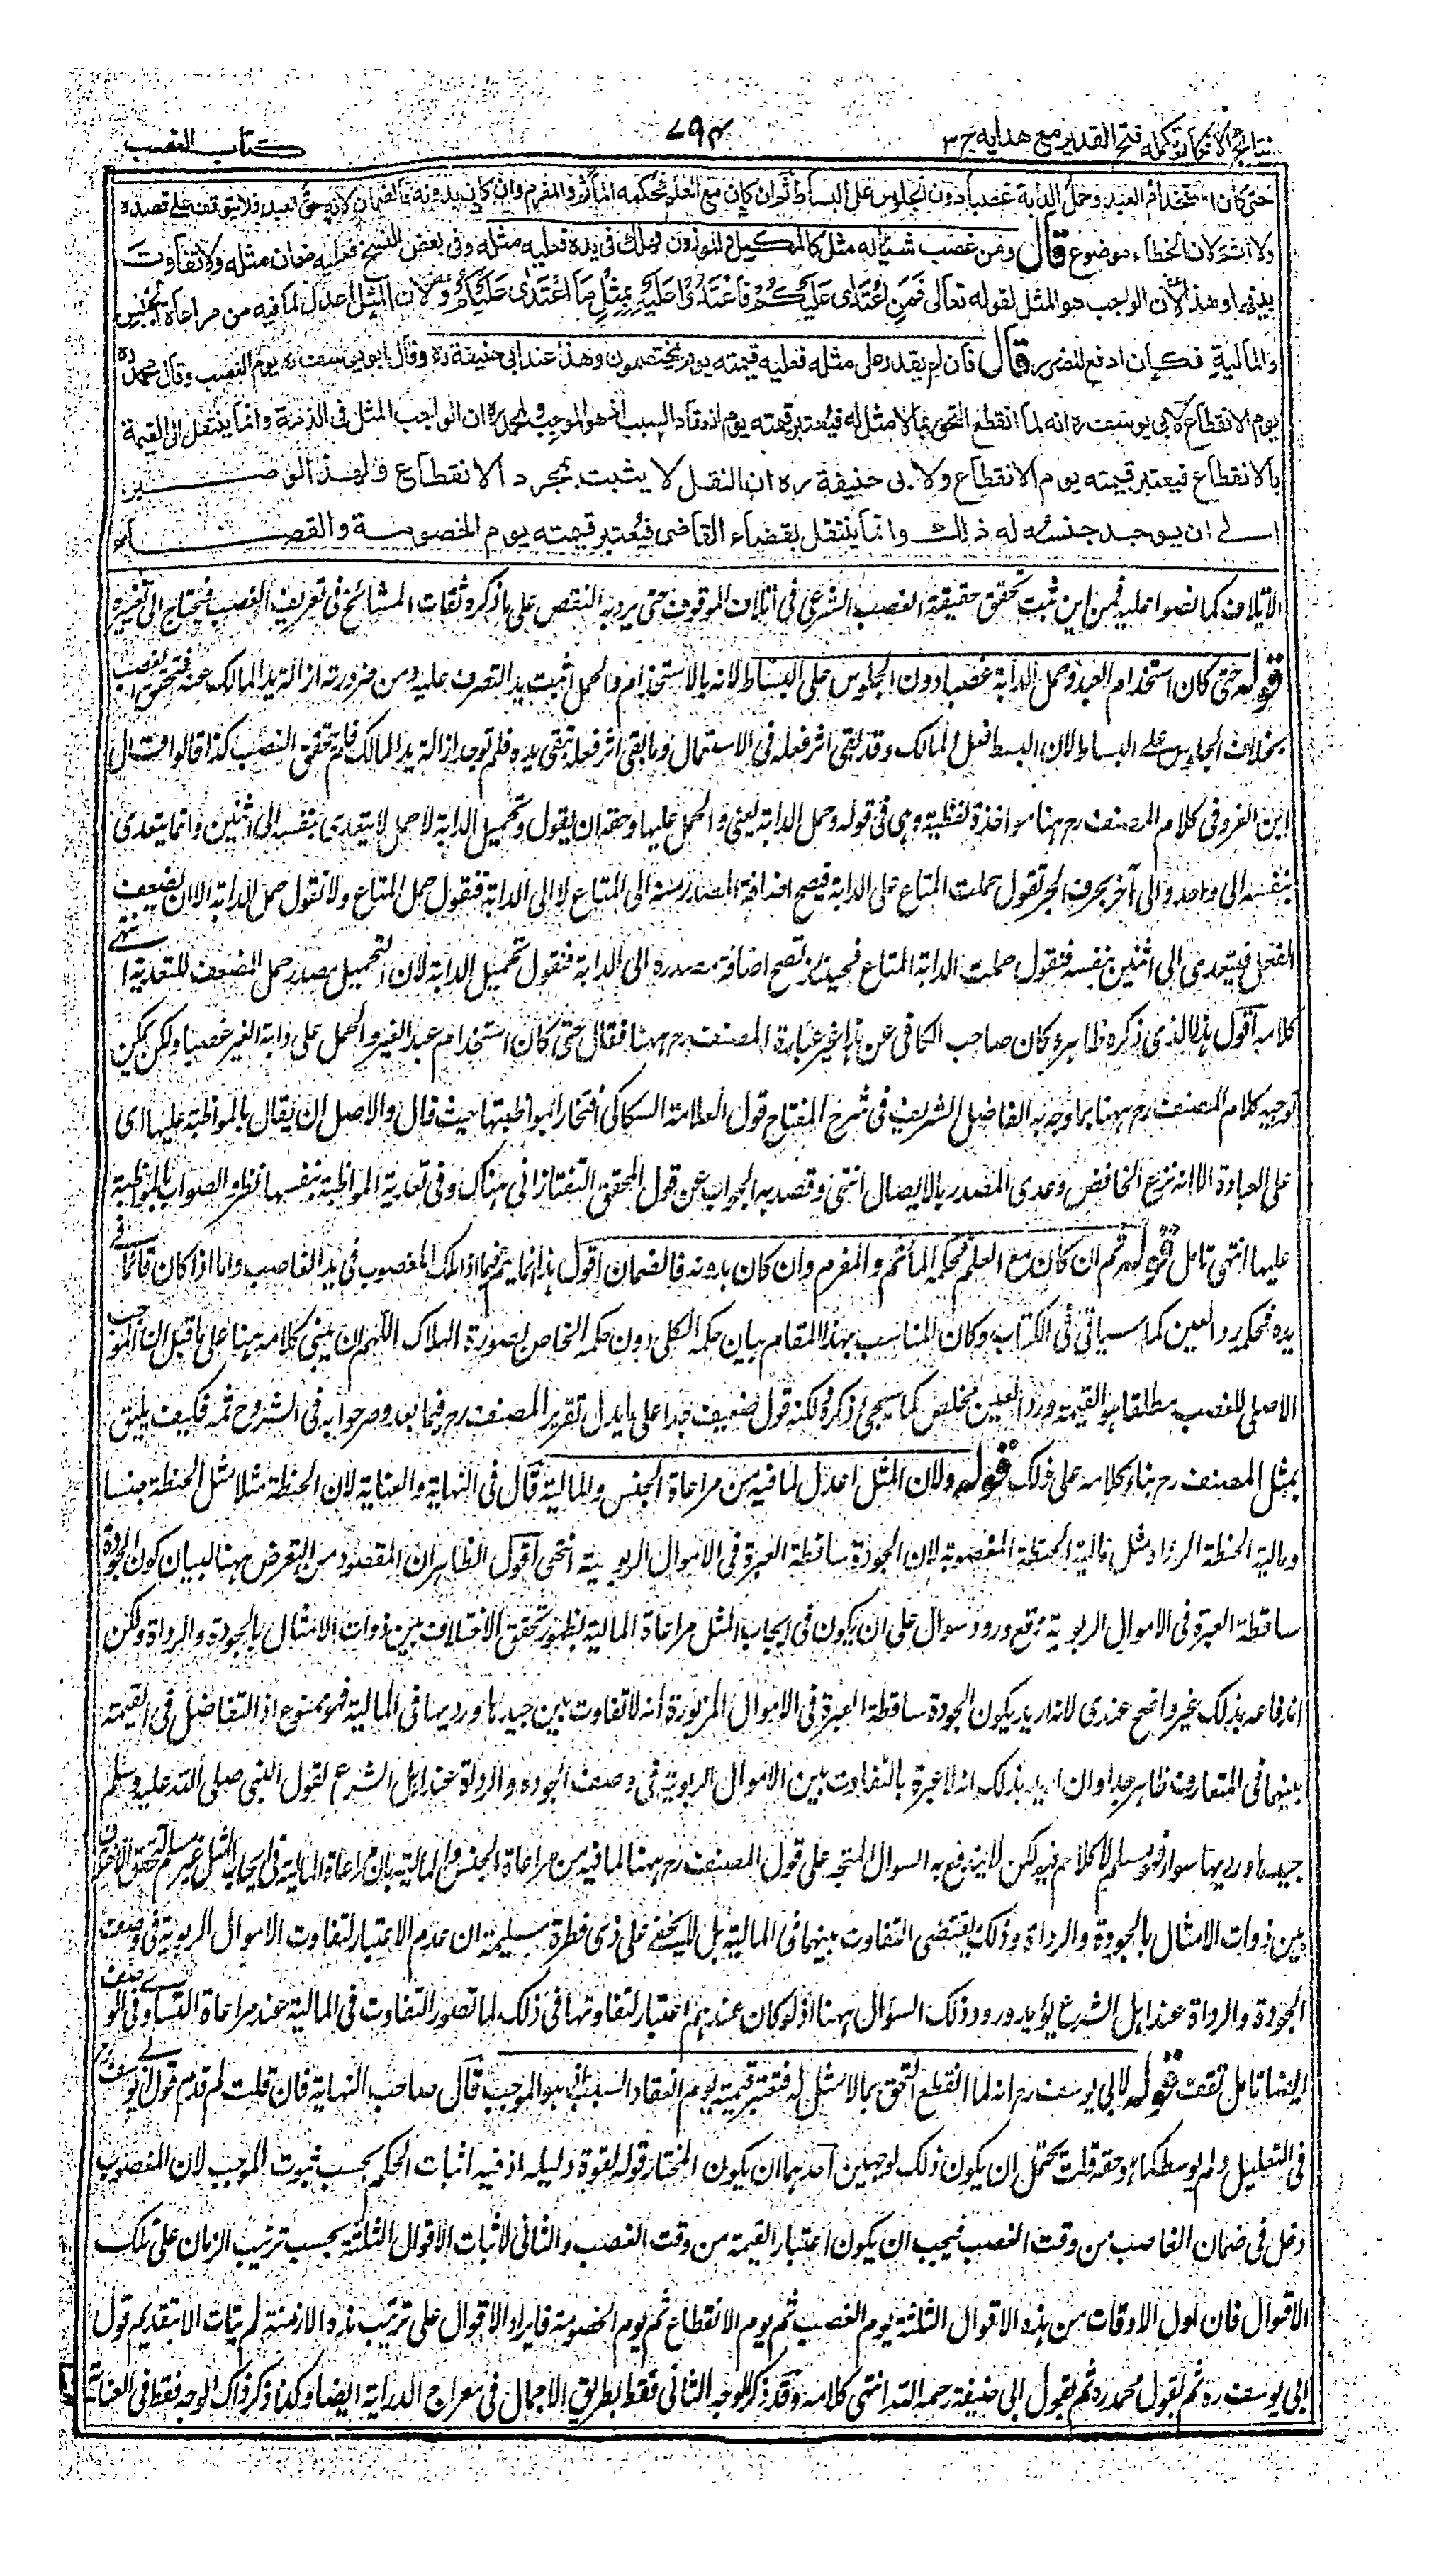 نتائج الافكار تكمله فتح القدير مع هدايه ج ٣
٧٩٤
كتاب الغصب
حتى كان استخدام العبد وحمل الدابة غصبا دون الجلوس على البساط ثم ان كان مع العلم فحكمه المأثم والمغرم وان كان بدونه فالضمان لانه حق العبد فلا يتوقف على قصده
ولا اثم لان الخطاء موضوع قال ومن غصب شيئا له مثل كالمكيل والموزون فهلك فى يده فعليه مثله وفى بعض النسخ فعليه ضمان مثله ولا تفاوت
بينهما وهذا لان الواجب هو المثل لقوله تعالى فَمَنِ اعْتَدٰى عَلَيْكُمْ فَاعْتَدُوْا عَلَيْهِ بِمِثْلِ مَا اعْتَدٰى عَلَيْكُمْ ولان المثل اعدل لما فيه من مراعاة الجنس
والمالية فكان ادفع للضرر قال فان لم يقدر على مثله فعليه قيمته يوم يختصمون وهذا عند ابى حنيفة ره وقال ابو يوسف ره يوم الغصب وقال محمد ره
يوم الانقطاع لابى يوسف ره انه لما انقطع التحق بما لا مثل له فيعتبر قيمته يوم انعقاد السبب اذ هو الموجب ولمحمد ره ان الواجب المثل فى الذمة وانما ينتقل الى القيمة
بالانقطاع فيعتبر قيمته يوم الانقطاع ولابى حنيفة ره ان النقل لا يثبت بمجرد الانقطاع ولهذا لو صبر
الى ان يوجد جنسه له ذلك وانما ينتقل بقضاء القاضى فيعتبر قيمته يوم الخصومة والقضاء
الاتلاف كما نصوا عليه فمن اين ثبت تحقق حقيقة الغصب الشرعى فى اتلاف الموقوف حتى يرد به النقض على ما ذكره ثقات المشائخ فى تعريف الغصب فيحتاج الى تغييره
قوله حتى كان استخدام العبد وحمل الدابة غصبا دون الجلوس على البساط لانه بالاستخدام والحمل اثبت يد التصرف عليه ومن ضرورته ازالة يد المالك عنه فتحقق الغصب
بخلاف الجلوس على البساط لان البسط فعل المالك وقد بقى اثر فعله فى الاستعمال وما بقى اثر فعله تبقى يده فلم توجد ازالة يد المالك فلم يتحقق الغصب كذا قالوا قال
ابن الغر وفى كلام المصنف رح ههنا مواخذة لفظية وهى فى قوله وحمل الدابة يعنى والحمل عليها وحقه ان يقول وتحميل الدابة لا حمل لا يتعدى بنفسه الى اثنين وانما يتعدى
بنفسه الى واحد والى آخر بحرف الجر تقول حملت المتاع على الدابة فيصح اضافة المصدر منه الى المتاع لا الى الدابة فتقول حمل المتاع ولا تقول حمل الدابة الا ان يضعف
الفعل فيتعدى الى اثنين بنفسه فتقول حملت الدابة المتاع فحينئذ تصح اضافة مصدره الى الدابة فتقول تحميل الدابة لان التحميل مصدر حمل المضعف للتعدية انتهى
كلامه اقول هذا الذى ذكره ظاهر وكان صاحب الكافى عن هذا غير عبارة المصنف رح ههنا فقال حتى كان استخدام عبد الغير والحمل على دابة الغير غصبا ولكن يمكن
توجيه كلام المصنف رح ههنا بما وجه به الفاضل الشريف فى شرح المفتاح قول العلامة السكاكى افتخارا بمواظبتها حيث قال والاصل ان يقال بالمواظبة عليها اى
على العبادة الا انه نزع الخافض وعدى المصدر بالايصال انتهى وقصد به الجواب عن قول المحقق التفتازانى هناك وفى تعدية المواظبة بنفسها نظر والصواب بالمواظبة
عليها انتهى تامل قوله ثم ان كان مع العلم فحكمه المأثم والمغرم وان كان بدونه فالضمان اقول هذا انما يتم فيما اذا هلك المغصوب فى يد الغاصب واما اذا كان قائما فى
يده فحكمه رد العين كما سيأتى فى الكتاب وكان المناسب بهذا المقام بيان حكمه الكلى دون حكمه الخاص بصورة الهلاك اللهم الا ان يبنى كلامه ههنا على ما قيل ان الموجب
الاصلى للغصب مطلقا هو القيمة ورد العين مخلص كما سيجئ ذكره لكنه قول ضعيف جدا على ما يدل تقرير المصنف رح فيما بعد وصرحوا به فى الشروح ثمه فكيف يليق
بمثل المصنف رح بناء كلامه على ذلك قوله ولان المثل اعدل لما فيه من مراعاة الجنس والمالية قال فى النهاية والعناية لان الحنطة مثلا مثل الحنطة جنسا
ومالية الحنطة المؤداة مثل مالية الحنطة المغصوبة لان الجودة ساقطة العبرة فى الاموال الربوية انتهى اقول الظاهر ان المقصود من التعرض ههنا لبيان كون الجودة
ساقطة العبرة فى الاموال الربوية دفع ورود سوال على ان يكون فى ايجاب المثل مراعاة المالية بظهور تحقق الاختلاف بين ذوات الامثال بالجودة والرداة ولكن
اندفاعه بذلك غير واضح عندى لانه ان اريد بكون الجودة ساقطة العبرة فى الاموال المزبورة انه لا تفاوت بين جيدها ورديها فى المالية فهو ممنوع اذ التفاضل فى القيمة
بينهما فى المتعارف ظاهر جدا وان اريد بذلك انه لا عبرة بالتفاوت بين الاموال الربوية فى وصف الجودة والرداة عند اهل الشرع لقول النبى صلى الله عليه وسلم
جيدها ورديها سواء فهو مسلم لا كلام فيه لكن لا يندفع به السوال المتجه على قول المصنف رح ههنا لما فيه من مراعاة الجنس والمالية بان مراعاة المالية فى ايجاب المثل غير مسلم لتحقق الاختلاف
بين ذوات الامثال بالجودة والرداة وذلك يقتضى التفاوت بينهما فى المالية بل لا يخفى على ذى فطرة سليمة ان عدم الاعتبار لتفاوت الاموال الربوية فى وصف
الجودة والرداة عند اهل الشرع يؤيد ورود ذلك السؤال ههنا اذ لو كان عندهم اعتبار لتفاوتها فى ذلك لما تصور التفاوت فى المالية عند مراعاة التساوى فى الوصف
ايضا تامل تقف قوله لابى يوسف رح انه لما انقطع التحق بما لا مثل له فتعتبر قيمته يوم انعقاد السبب اذ هو الموجب قال صاحب النهاية فان قلت لم قدم قول ابى يوسف رح
فى التعليل ولم يوسطه كما هو حقه قلت يحتمل ان يكون ذلك لوجهين احدهما ان يكون المختار قوله لقوة دليله اذ فيه اثبات الحكم بحسب ثبوت الموجب لان المغصوب
دخل فى ضمان الغاصب من وقت الغصب فيجب ان يكون اعتبار القيمة من وقت الغصب والثانى لاثبات الاقوال الثلثة بحسب ترتيب الزمان على تلك
الاقوال فان اول الاوقات من هذه الاقوال الثلثة يوم الغصب ثم يوم الانقطاع ثم يوم الخصومة فايراد الاقوال على ترتيب هذه الازمنة لم يتات الا بتقديم قول
ابى يوسف ره ثم بقول محمد ره ثم بقول ابى حنيفة رحمه الله انتهى كلامه وقد ذكر الوجه الثانى فقط بطريق الاجمال فى معراج الدراية ايضا وكذا ذكر ذاك الوجه فقط فى العناية